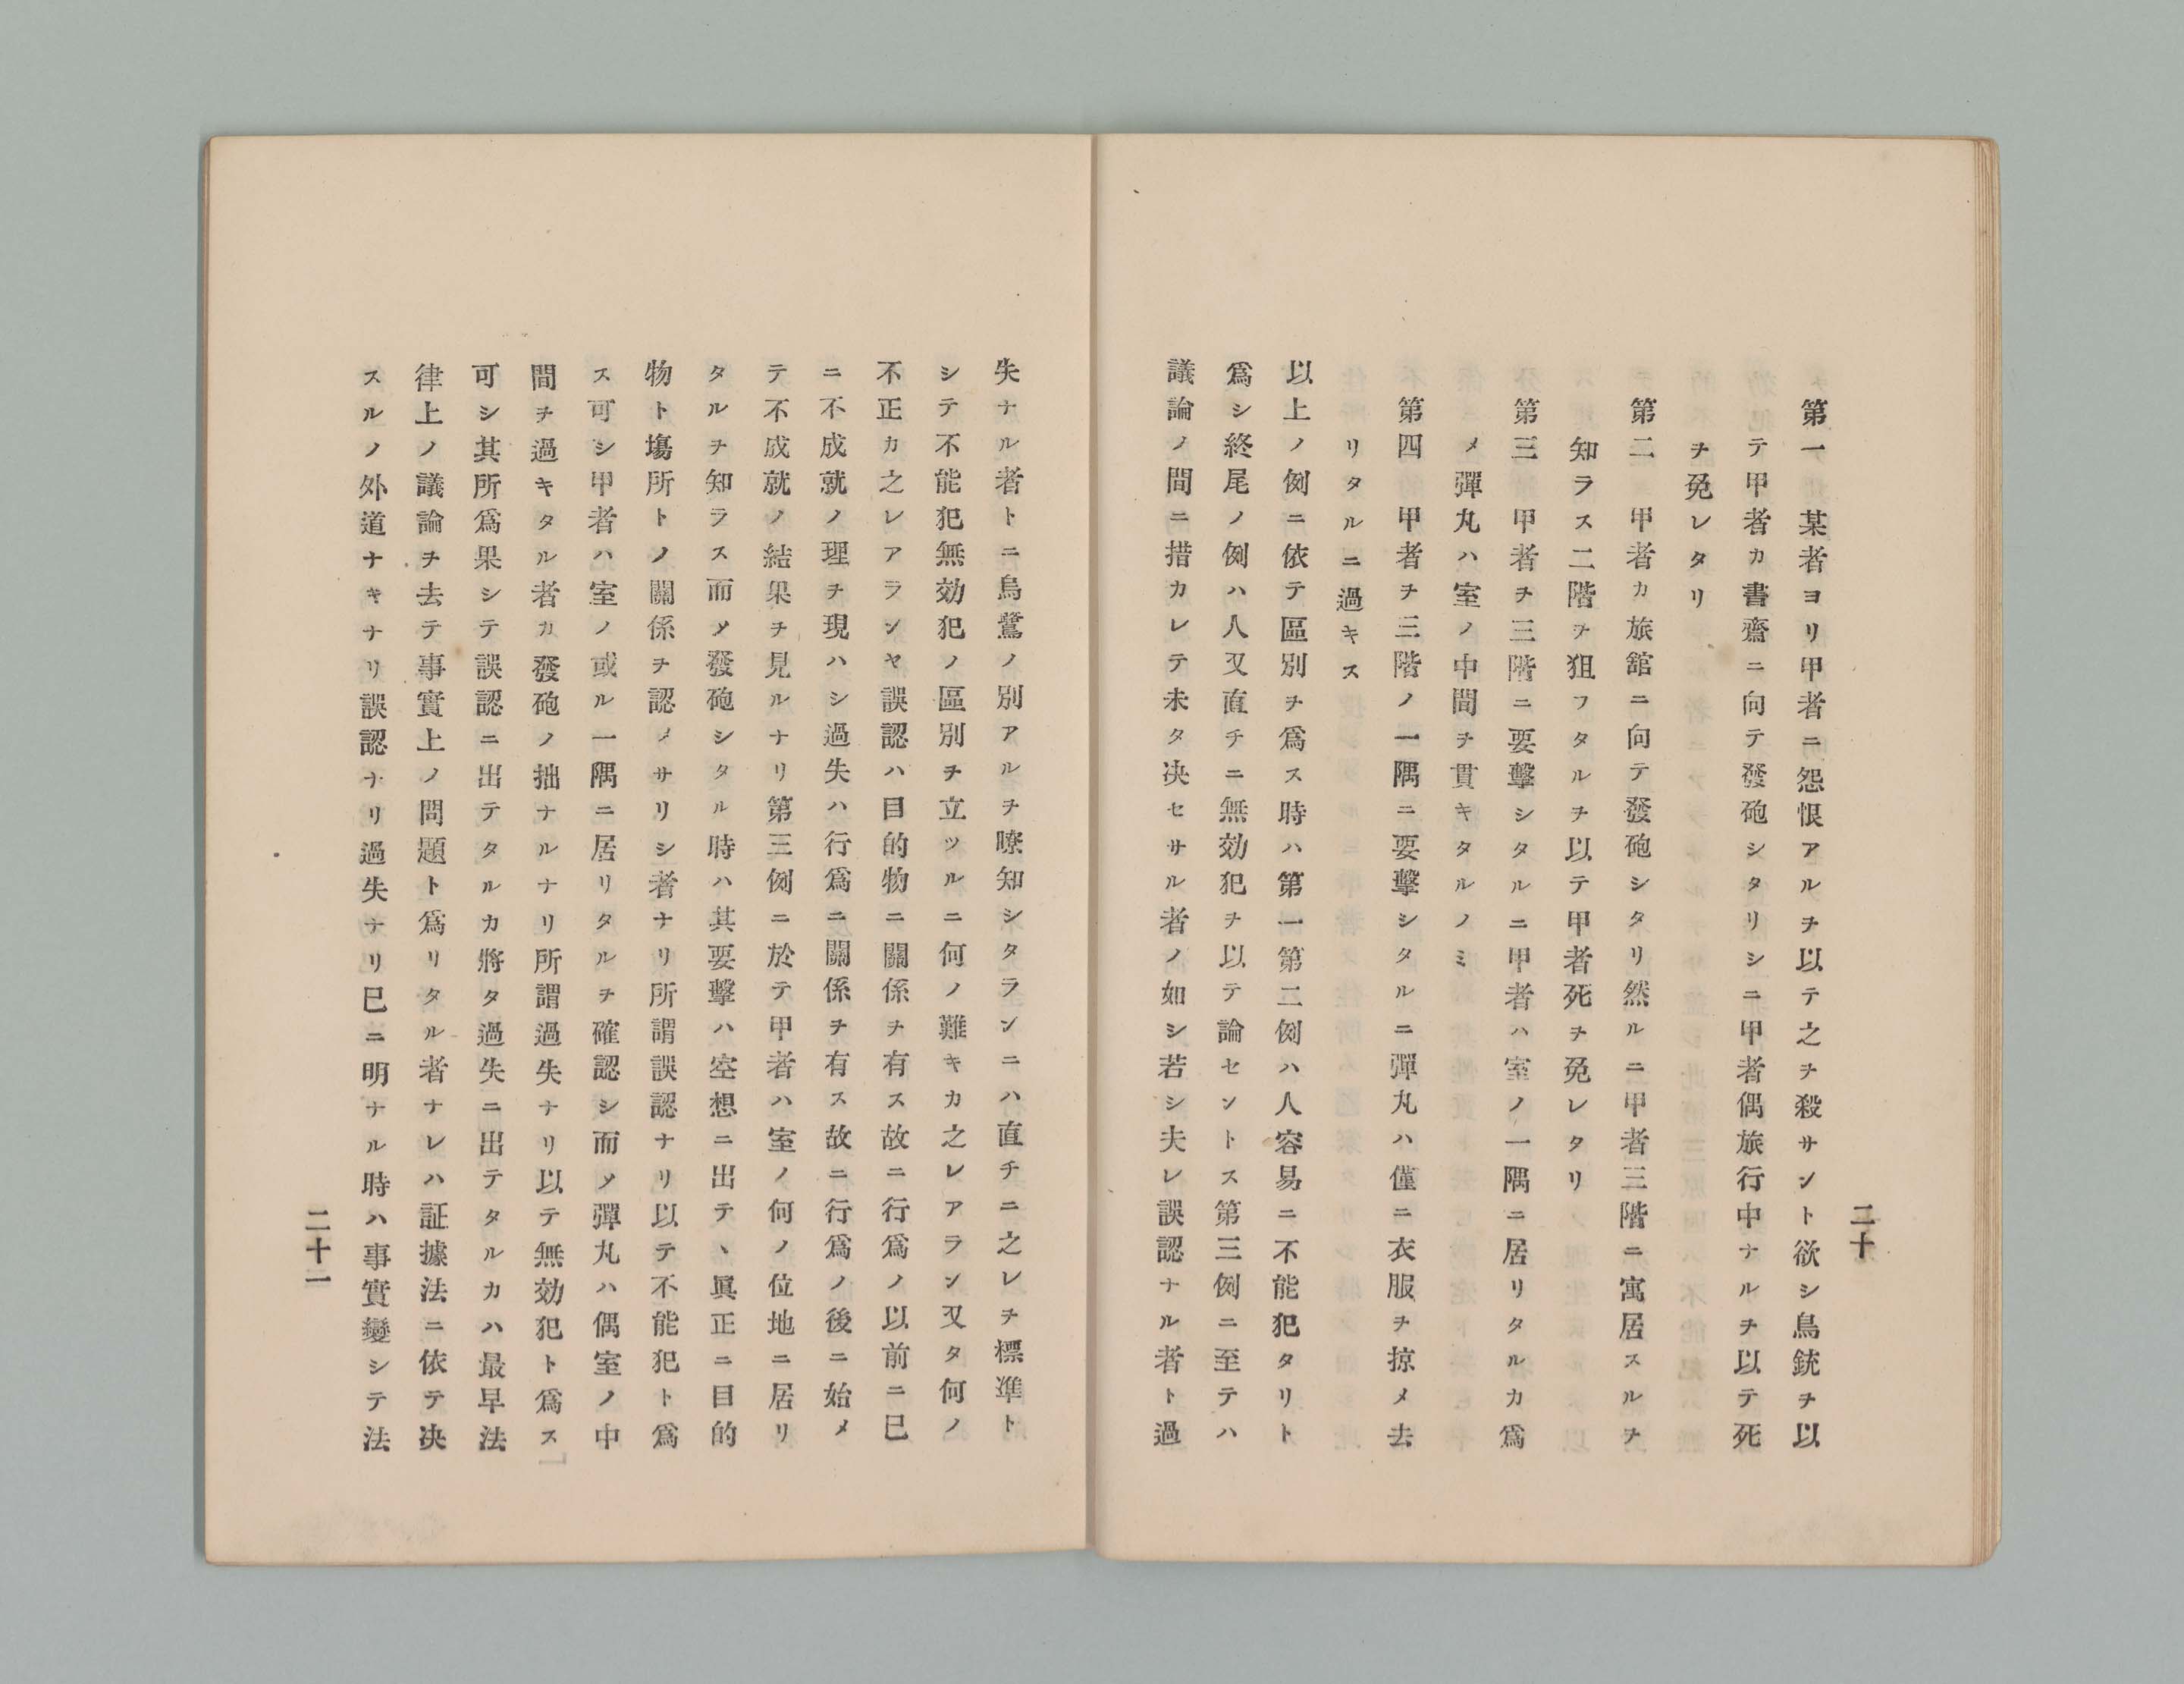 第一 某者ヨリ甲者ニ怨恨アルヲ以テ之ヲ殺サント欲シ鳥銃ヲ以
テ甲者カ書齋ニ向テ發砲シタリシニ甲者偶旅行中ナルヲ以テ死
ヲ免レタリ
第二 甲者カ旅舘ニ向テ發砲シタリ然ルニ甲者三階ニ寓居スルヲ
知ラス二階ヲ狙フタルヲ以テ甲者死ヲ免レタリ
第三 甲者ヲ三階ニ要擊シタルニ甲者ハ室ノ一隅ニ居リタルカ爲
メ彈丸ハ室ノ中間ヲ貫キタルノミ
第四 甲者ヲ三階ノ一隅ニ要擊シタルニ彈丸ハ僅ニ衣服ヲ掠メ去
リタルニ過キス
以上ノ例ニ依テ區別ヲ爲ス時ハ第一第二例ハ人容易ニ不能犯タリト
爲シ終尾ノ例ハ人又直チニ無効犯ヲ以テ論セントス第三例ニ至テハ
議論ノ間ニ措カレテ未タ决セサル者ノ如シ若シ夫レ誤認ナル者ト過
二十
失ナル者トニ烏鷺ノ別アルヲ瞭知シタランニハ直チニ之レヲ標準ト
シテ不能犯無効犯ノ區別ヲ立ツルニ何ノ難キカ之レアラン又タ何ノ
不正カ之レアランヤ誤認ハ目的物ニ關係ヲ有ス故ニ行爲ノ以前ニ已
ニ不成就ノ理ヲ現ハシ過失ハ行爲ニ關係ヲ有ス故ニ行爲ノ後ニ始メ
テ不成就ノ結果ヲ見ルナリ第三例ニ於テ甲者ハ室ノ何ノ位地ニ居リ
タルヲ知ラス而メ發砲シタル時ハ其要擊ハ空想ニ出テ、眞正ニ目的
物ト塲所トノ關係ヲ認メサリシ者ナリ所謂誤認ナリ以テ不能犯ト爲
ス可シ甲者ハ室ノ或ル一隅ニ居リタルヲ確認シ而メ彈丸ハ偶室ノ中
間ヲ過キタル者カ發砲ノ拙ナルナリ所謂過失ナリ以テ無効犯ト爲ス
可シ其所爲果シテ誤認ニ出テタルカ將タ過失ニ出テタルカハ最早法
律上ノ議論ヲ去テ事實上ノ問題ト爲リタル者ナレハ証據法ニ依テ决
スルノ外道ナキナリ誤認ナリ過失ナリ已ニ明ナル時ハ事實變シテ法
二十一